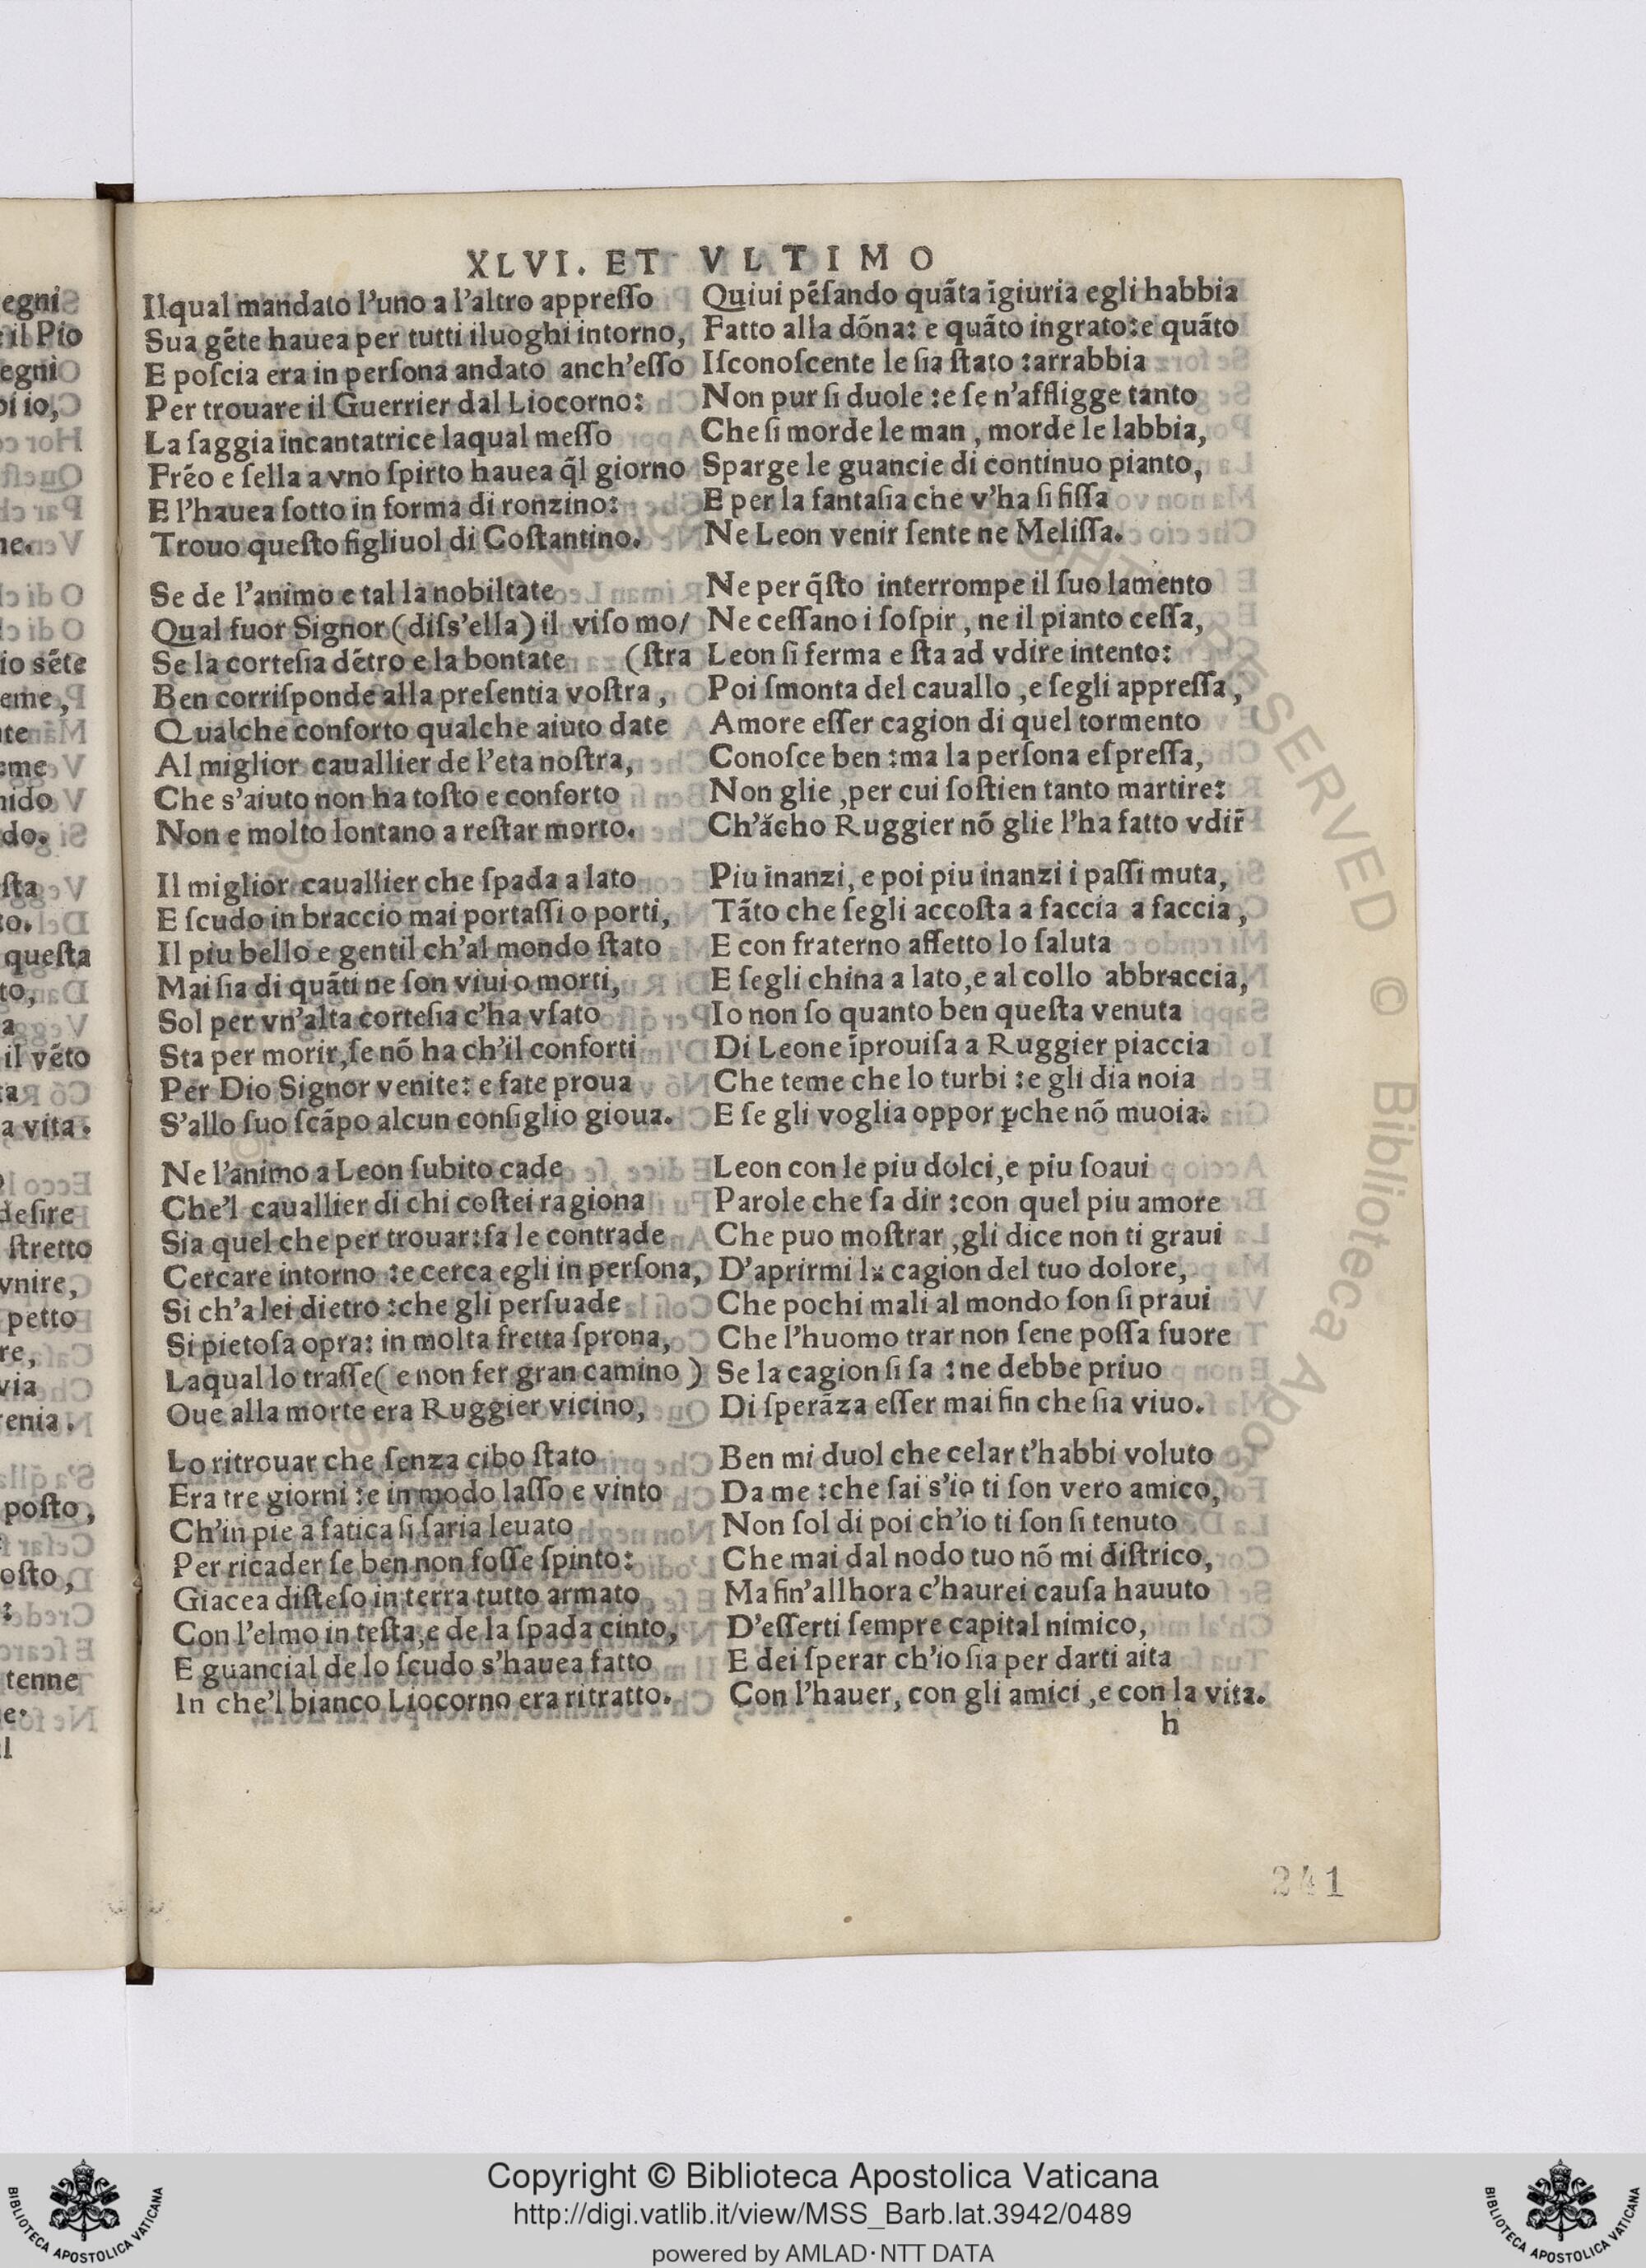 XLVI. ET VLTIMO
Ilqual mandato l'uno a l'altro appreſſo
Sua gẽte hauea per tutti iluoghi intorno,
E poſcia era in perſona andato anch'eſſo
Per trouare il Guerrier dal Liocorno:
La ſaggia incantatrice laqual meſſo
Frẽo e ſella a vno ſpirto hauea q̃l giorno
E l'hauea ſotto in forma di ronzino:
Trouo queſto figliuol di Coſtantino.
Se de l'animo e tal la nobiltate
Qual fuor Signor (diſs'ella) il viſo mo/
Se la corteſia dẽtro e la bontate (ſtra
Ben corriſponde alla preſentia voſtra,
Qualche conforto qualche aiuto date
Al miglior cauallier de l'eta noſtra,
Che s'aiuto non ha toſto e conforto
Non e molto lontano a reſtar morto.
Il miglior cauallier che ſpada a lato
E ſcudo in braccio mai portaſſi o porti,
Il piu bello e gentil ch'al mondo ſtato
Mai ſia di quãti ne ſon viui o morti,
Sol per vn'alta corteſia c'ha vſato
Sta per morir, ſe nõ ha ch'il conforti
Per Dio Signor venite: e fate proua
S'allo ſuo ſcãpo alcun conſiglio gioua.
Ne l'animo a Leon ſubito cade
Che'l cauallier di chi coſtei ragiona
Sia quel che per trouar: fa le contrade
Cercare intorno :e cerca egli in perſona,
Si ch'a lei dietro :che gli perſuade
Si pietoſa opra: in molta fretta ſprona,
Laqual lo traſſe( e non fer gran camino )
Oue alla morte era Ruggier vicino,
Lo ritrouar che ſenza cibo ſtato
Era tre giorni :e in modo laſſo e vinto
Ch'in pie a fatica ſi ſaria leuato
Per ricader ſe ben non foſſe ſpinto:
Giacea diſteſo in terra tutto armato
Con l'elmo in teſta, e de la ſpada cinto,
E guancial de lo ſcudo s'hauea fatto
In che'l bianco Liocorno era ritratto.
Quiui pẽſando quãta ĩgiuria egli habbia
Fatto alla dõna: e quãto ingrato: e quãto
Iſconoſcente le ſia ſtato :arrabbia
Non pur ſi duole :e ſe n'affligge tanto
Che ſi morde le man , morde le labbia,
Sparge le guancie di continuo pianto,
E per la fantaſia che v'ha ſi fiſſa
Ne Leon venir ſente ne Meliſſa.
Ne per q̃ſto interrompe il ſuo lamento
Ne ceſſano i ſoſpir , ne il pianto ceſſa,
Leon ſi ferma e ſta ad vdire intento:
Poi ſmonta del cauallo ,e ſegli appreſſa,
Amore eſſer cagion di quel tormento
Conoſce ben :ma la perſona eſpreſſa,
Non glie ,per cui ſoſtien tanto martire:
Ch'ãcho Ruggier nõ glie l'ha fatto vdir̃
Piu inanzi, e poi piu inanzi i paſſi muta,
Tãto che ſegli accoſta a faccia a faccia,
E con fraterno affetto lo ſaluta
E ſegli china a lato, e al collo abbraccia,
Io non ſo quanto ben queſta venuta
Di Leone ĩprouiſa a Ruggier piaccia
Che teme che lo turbi :e gli dia noia
E ſe gli voglia oppor ꝑche nõ muoia.
Leon con le piu dolci, e piu ſoaui
Parole che ſa dir :con quel piu amore
Che puo moſtrar ,gli dice non ti graui
D'aprirmi la cagion del tuo dolore,
Che pochi mali al mondo ſon ſi praui
Che l'huomo trar non ſene poſſa fuore
Se la cagion ſi ſa :ne debbe priuo
Di ſperãza eſſer mai fin che ſia viuo.
Ben mi duol che celar t'habbi voluto
Da me :che ſai s'io ti ſon vero amico,
Non ſol di poi ch'io ti ſon ſi tenuto
Che mai dal nodo tuo nõ mi diſtrico,
Ma fin'allhora c'haurei cauſa hauuto
D'eſſerti ſempre capital nimico,
E dei ſperar ch'io ſia per darti aita
Con l'hauer, con gli amici ,e con la vita.
h
241
egni
il Pio
egni
io,
ne.
io sẽte
eme,
nte
eme
nido
do.
ſta
to.
queſta
to,
a
il vẽto
ta
a vita.
deſire
ſtretto
vnire,
petto
re,
via
enia.
poſto,
oſto,
:
tenne
e.
Copyright © Biblioteca Apostolica Vaticana
http://digi.vatlib.it/view/MSS_Barb.lat.3942/0489
powered by AMLAD·NTT DATA
BIBLIOTECA APOSTOLICA VATICANA
BIBLIOTECA APOSTOLICA VATICANA